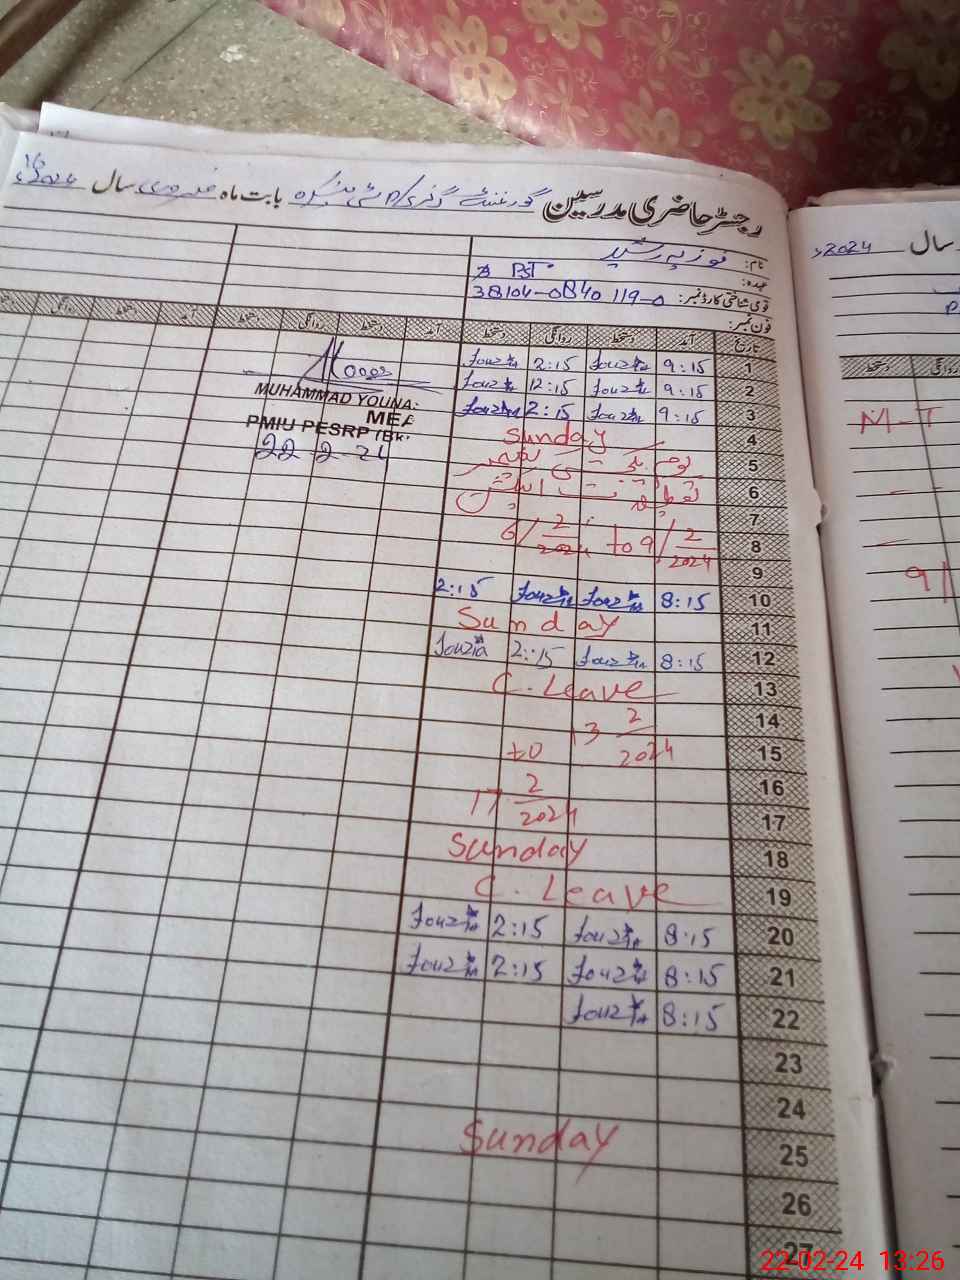 رجسٹر حاضری مدرسین گورنمنٹ بابت ماہ فروری سال 2024ء
نام: فوزیہ رشید
عہدہ: PST
قومی شناختی کارڈ نمبر: 38104-0840119-0
فون نمبر:
تاریخ آمد دستخط روانگی دستخط آمد دستخط روانگی دستخط آمد دستخط روانگی
1 9:15 Fouzia 2:15 Fouzia
2 9:15 Fouzia 12:15 Fouzia
3 9:15 Fouzia 2:15 Fouzia
4 Sunday
5
6
7
8 6/2/2024 to 9/2/2024
9
10 8:15 Fouzia Fouzia 2:15
11 Sunday
12 8:15 Fouzia 2:15 Fouzia
13 C. Leave
14 13 2/2024
15 to
16
17 17 2/2024
18 Sunday
19 C. Leave
20 8:15 Fouzia 2:15 Fouzia
21 8:15 Fouzia 2:15 Fouzia
22 8:15 Fouzia
23
24
25 Sunday
26
27
MUHAMMAD YOUNA
MEA
PMIU PESRP (Bk
22-2-24
سال 2024ء
دستخط روانگی
M-T
9/
22-02-24 13:26